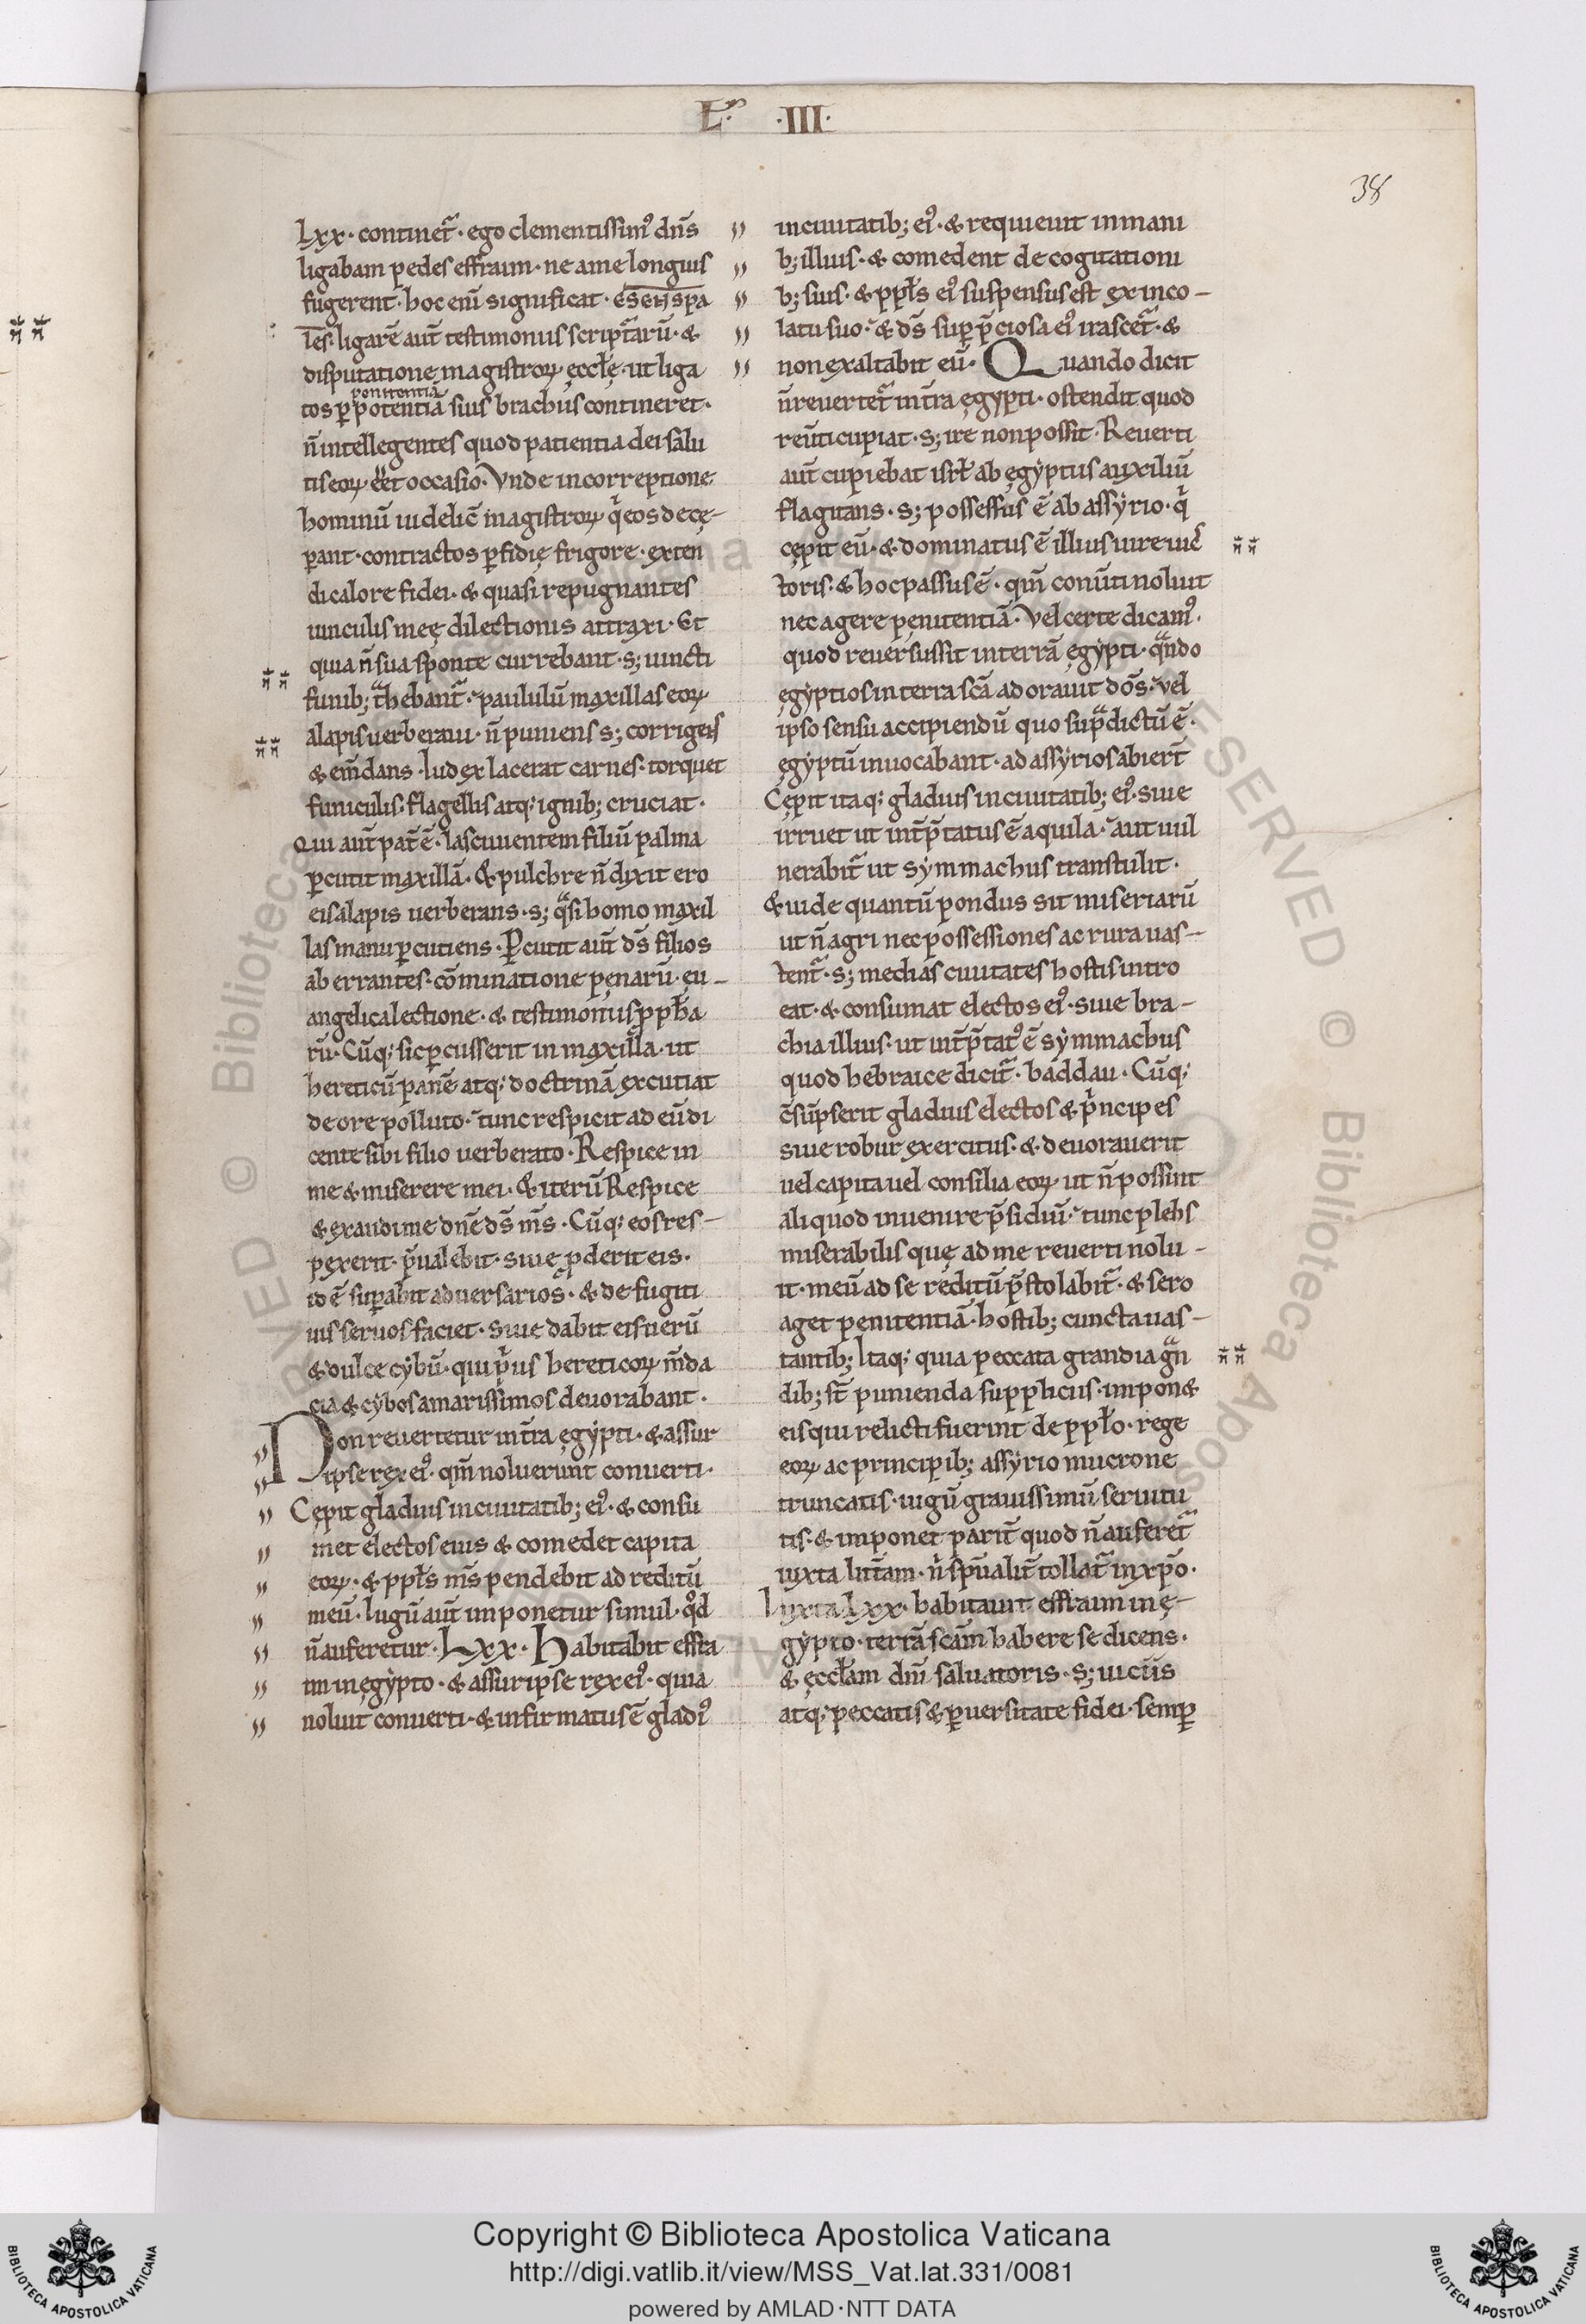 L̃. ·III·
38
Lxx· continet᷑· ego clementissim᷒ dn̄s
ligabam pedes effraim· ne a me longius
fugerent· hoc eni᷑ significat·
ligare᷑ aut᷑ testimoniis script᷑arū· &
disputatione magistroꝝ ęccłę· ut liga
penitentiā
tos ꝑ potentiā suis brachiis contineret·
n̄ intellegentes quod patientia dei salu
tis eoꝝ eēt occasio· Vnde in correptione
hominū uidelic̄ magistroꝝ q̇ eos decę-
perant· contractos ꝑfidię frigore· exten
di calore fidei· & quasi repugnantes
uinculis meę dilectionis attraxi· Et
quia n̄ sua sponte currebant· s; uincti
funib; t᷑hebant᷑· paululū maxillas eoꝝ
alapis uerberaui· n̄ puniens s; corrigens
& em̄dans· Iudex lacerat carnes· torquet
funiculis· flagellis atq; ignib; cruciat·
Qui aut᷑ pat᷑ ē· lasciuientem filiū palma
ꝑcutit maxillā· & pulchre n̄ dixit ero
eis alapis uerberans· s; q᷑si homo maxil
las manu ꝑcutiens· Ꝑcutit aut᷑ ds̄ filios
aberrantes· cōminatione pęnarū· eu-
angelica lectione· & testimoniis ꝓpħa
rū· Cūq; sic ꝑcusserit in maxilla· ut
hereticū panē atq; doctrinā excutiat
de ore polluto· tunc respicit ad eū di
cente sibi filio uerberato· Respice in
me & miserere mei· & iterū Respice
& exaudi me dn̄e ds̄ m̄s· Cūq; eos res-
pexerit· p̄ualebit· siue ꝓderit eis·
id ē suꝑabit aduersarios· & de fugiti
uis seruos faciet· siue dabit eis uerū
& dulce cybū· qui p̓us hereticoꝝ m̄da
cia & cybos amarissimos deuorabant·
Non reuertetur in t᷑ra ęgypti· & assur
ipse rex ei᷒· qm̄ noluerunt conuerti·
Cępit gladius in ciuitatib; ei᷒· & consu
met electos eius & comedet capita
eoꝝ· & ppłs m̄s pendebit ad reditū
meū· Iugū aut᷑ imponetur simul· q̊d
n̄ auferetur· Lxx· Habitabit effra
im in ęgypto· & assur ipse rex ei᷒· quia
noluit conuerti· & infirmatus ē gladi᷒
in ciuitatib; ei᷒· & requieuit in mani
b; illius· & comedent de cogitationi
b; suis· & ppłs ei᷒ suspensus est ex inco-
latu suo· & ds̄ suꝑ p̄ciosa ei᷒ irascet᷑· &
non exaltabit eū· Quando dicit
n̄ reuertet᷑ in t᷑ra ęgypti· ostendit quod
reu᷑ti cupiat· s; ire non possit· Reuerti
aut᷑ cupiebat isrł ab ęgyptiis auxiliū
flagitans· s; possessus ē ab assyrio· q̇
cępit eū· & dominatus ē illius iure uic
toris· & hoc passus ē· qm̄ conu᷑ti noluit
nec agere penitentiā· Vel certe dicam᷒·
quod reuersus sit in terrā ęgypti· q᷑ndo
ęgyptios in terra sc̄a adorauit do᷑s· vel
ipso sensu accipiendū quo sup᷑ dictū ē·
ęgyptū inuocabant· ad assyrios abier᷑t
Cępit itaq; gladius in ciuitatib; ei᷒· siue
irruet ut int᷑p̄tatus ē aquila· aut uul
nerabit᷑ ut symmachus transtulit·
& uide quantū pondus sit miseriarū
ut n̄ agri nec possessiones ac rura uas-
tent᷑· s; medias ciuitates hostis intro
eat· & consumat electos ei᷒· siue bra-
chia illius· ut int᷑p̄tat᷒ ē symmachus
quod hebraice dicit᷑· baddau· Cūq;
c̄sūpserit gladius electos & p̓ncipes
siue robur exercitus· & deuorauerit
uel capita uel consilia eoꝝ ut n̄ possint
aliquod inuenire p̄sidiū· tunc plebs
miserabilis quę ad me reuerti nolu-
it· meū ad se reditū p̄stolabit᷑· & sero
aget penitentiā· hostib; cuncta uas-
tantib; Itaq; quia peccata grandia g᷑n
dib; st̄ punienda suppliciis· impon&
eis qui relicti fuerint de ppło· rege
eoꝝ ac principib; assyrio mucrone
truncatis· iugū grauissimū seruitu
tis· & imponet parit᷑ quod n̄ auferet᷑
iuxta litt᷑am· n̓ sp̄ualit᷑ tollat᷑ in xp̄o·
Iuxta Lxx· habitauit effraim in ę-
gypto· terrā sc̄am habere se dicens·
& ęccłam dn̄i saluatoris· s; uiciis
atq; peccatis & ꝑuersitate fidei· semꝑ
Copyright © Biblioteca Apostolica Vaticana
http://digi.vatlib.it/view/MSS_Vat.lat.331/0081
powered by AMLAD·NTT DATA
BIBLIOTECA APOSTOLICA VATICANA
BIBLIOTECA APOSTOLICA VATICANA